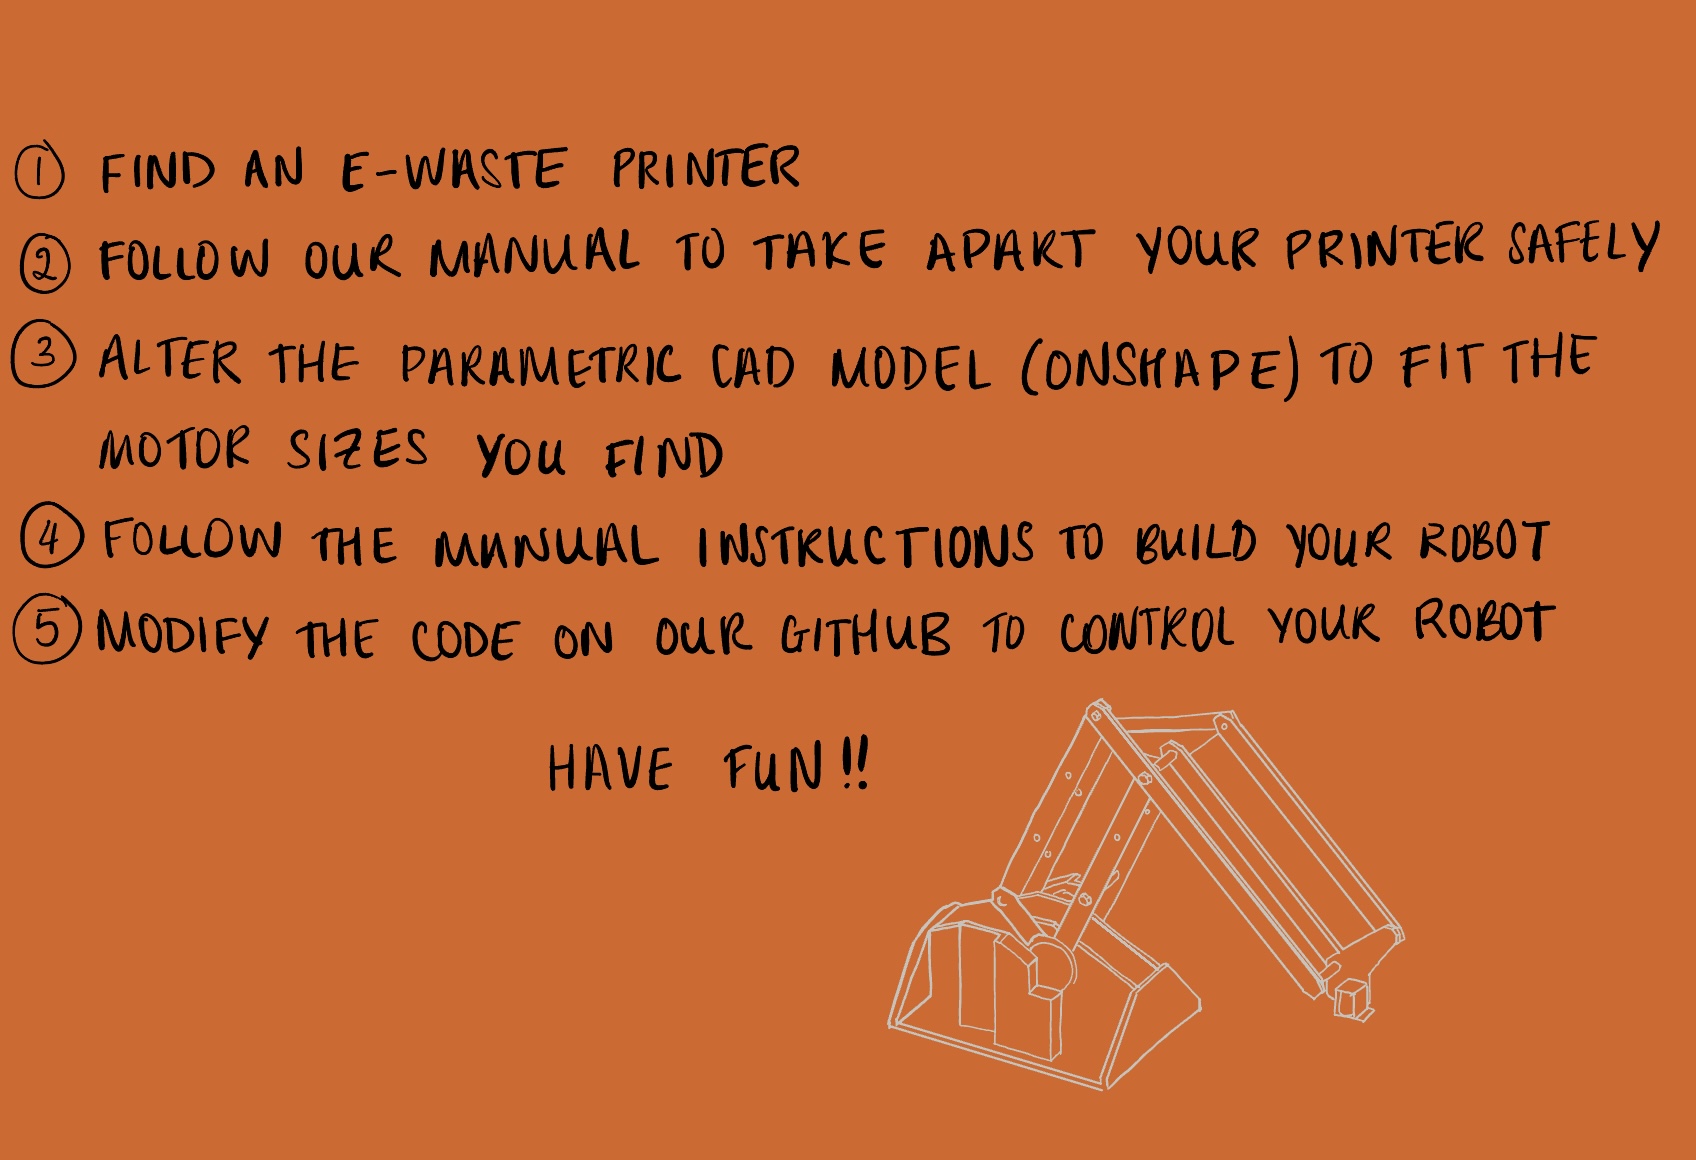 ① FIND AN E-WASTE PRINTER
② FOLLOW OUR MANUAL TO TAKE APART YOUR PRINTER SAFELY
③ ALTER THE PARAMETRIC CAD MODEL (ONSHAPE) TO FIT THE
MOTOR SIZES YOU FIND
④ FOLLOW THE MANUAL INSTRUCTIONS TO BUILD YOUR ROBOT
⑤ MODIFY THE CODE ON OUR GITHUB TO CONTROL YOUR ROBOT
HAVE FUN!!